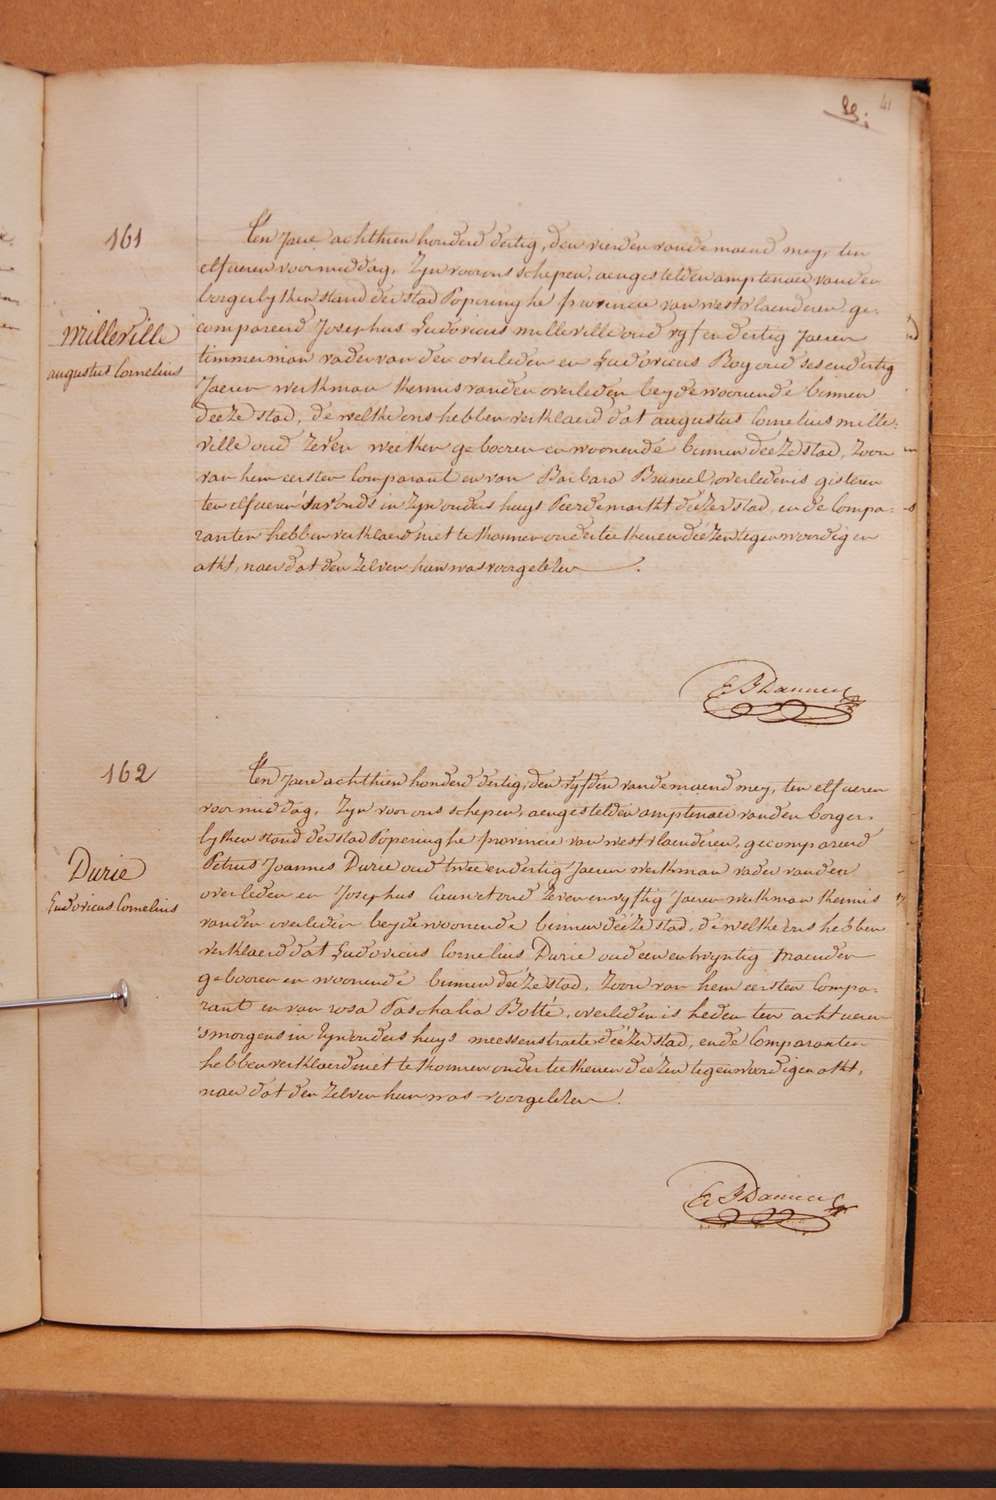 41
161
Ten jaere achthien honderd dertig, den vierden vande maend mey, ten
elf ueren voormiddag, zyn voor ons schepen, aengestelden amptenaer van den
borgerlyken stand der stad Poperinghe provincie van westvlaenderen ge-
Milleville
compareerd Josephus Ludovicus milleville oud vyf en dertig jaeren
augustus Cornelius
timmerman vader van den overleden en Ludovicus Roy oud ses en dertig
jaeren werkman kennis van den overleden beyde woonende binnen
deeze stad, de welke ons hebben verklaerd dat augustus Cornelius mille-
ville oud zeven weeken gebooren en woonende binnen deeze stad, zoon
van hem eersten Comparant en van Barbara Bruneel, overleden is gisteren
ten elf ueren s'avonds in zyn ouders huys Peerdemarkt deézer stad, en de Compa-
ranten hebben verklaerd niet te konnen onderteekenen deézen tegenwoordigen
akt, naer dat den zelven hun was voorgelezen.
162
Ten jaere achthien honderd dertig, den vyfden vande maend mey, ten elf ueren
voormiddag, zyn voor ons schepen, aengestelden amptenaer van den borger-
lyken stand der stad Poperinghe provincie van westvlaenderen, gecompareerd
Durie
Petrus Joannes Durie oud twee en dertig jaeren werkman vader van den
Ludovicus Cornelius
overleden en Josephus oud zeven en vyftig jaeren werkman kennis
van den overleden beyde woonende binnen deéze stad, de welke ons hebben
verklaerd dat Ludovicus Cornelius Durie oud een en twyntig maenden
gebooren en woonende binnen deéze stad, zoon van hem eersten Compa-
rant en van rosa Paschalia Botté, overleden is heden ten acht ueren
'smorgens in zyn ouders huys meessenstraete deézer stad, en de Comparanten
hebben verklaerd niet te konnen onderteekenen deézen tegenwoordigen akt,
naer dat den zelven hun was voorgelezen.